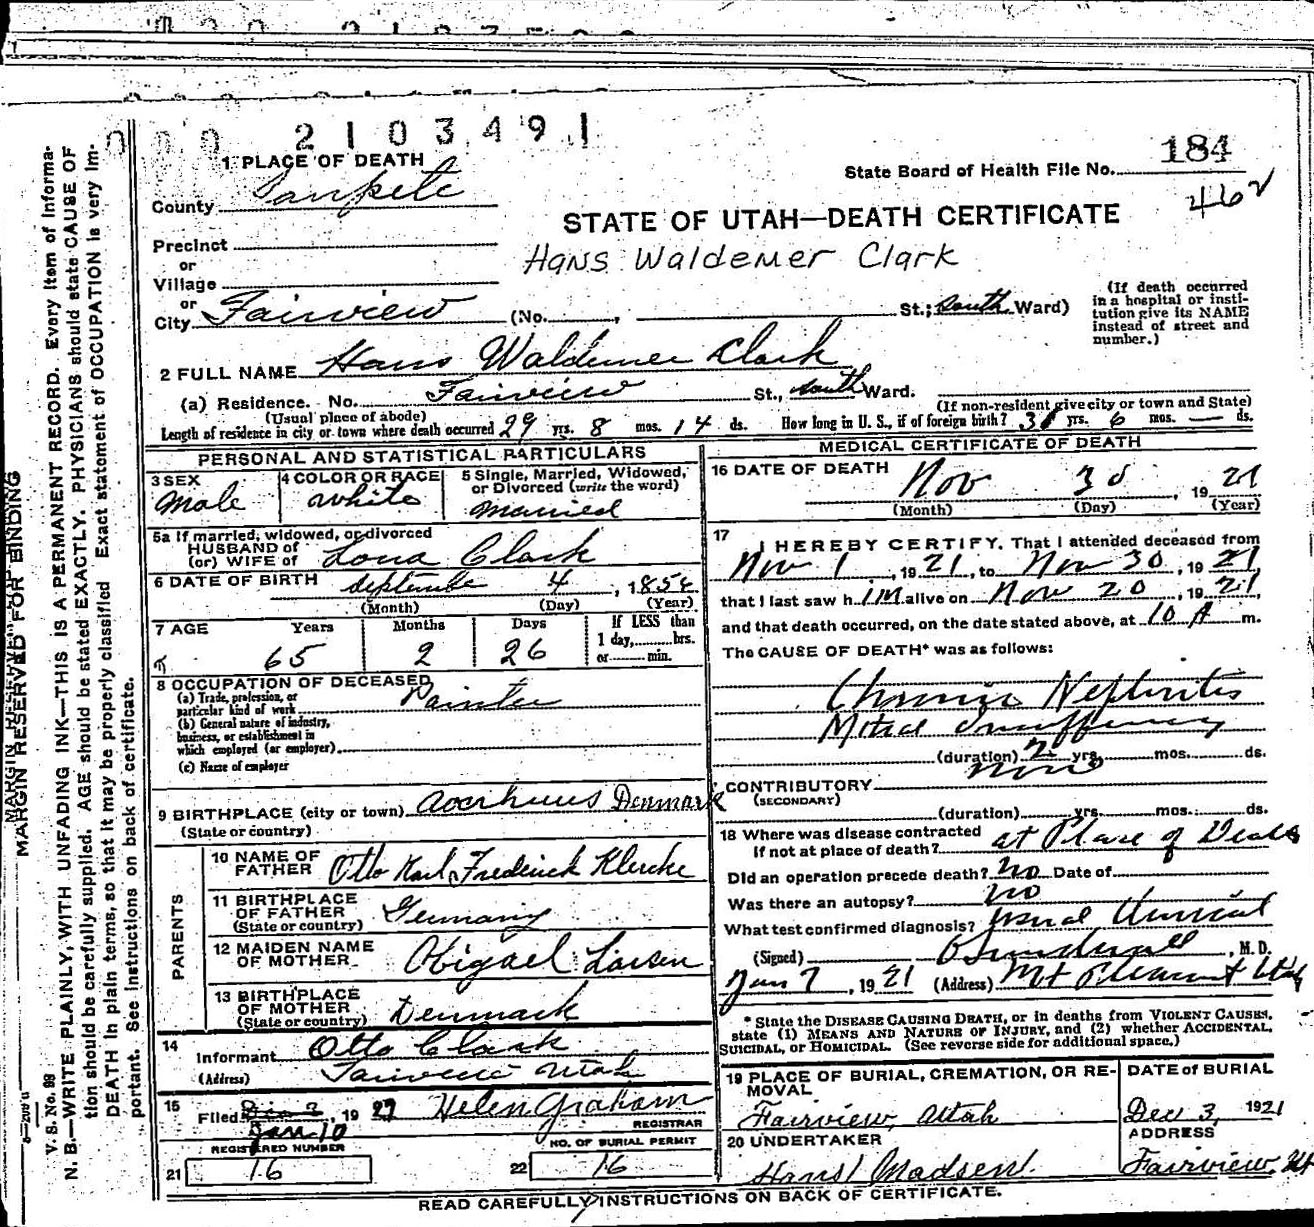 2103491
1 PLACE OF DEATH
State Board of Health File No. 184
462
County Sanpete
STATE OF UTAH—DEATH CERTIFICATE
Precinct
Hans Waldemer Clark
or
Village
or
City Fairview (No. , St.; South Ward)
(If death occurred in a hospital or institution give its NAME instead of street and number.)
2 FULL NAME Hans Waldemer Clark
(a) Residence. No. Fairview St., South Ward.
(Usual place of abode) (If non-resident give city or town and State)
Length of residence in city or town where death occurred 29 yrs. 8 mos. 14 ds. How long in U. S., if of foreign birth? yrs. 6 mos. — ds.
PERSONAL AND STATISTICAL PARTICULARS
3 SEX Male
4 COLOR OR RACE White
5 Single, Married, Widowed, or Divorced (write the word) Married
5a If married, widowed, or divorced
HUSBAND of
(or) WIFE of Lona Clark
6 DATE OF BIRTH September 4, 1856
(Month) (Day) (Year)
7 AGE Years Months Days If LESS than
1 day, hrs.
or min.
65 2 26
8 OCCUPATION OF DECEASED
(a) Trade, profession, or
particular kind of work Painter
(b) General nature of industry,
business, or establishment in
which employed (or employer)
(c) Name of employer
9 BIRTHPLACE (city or town) Aarhuus Denmark
(State or country)
PARENTS
10 NAME OF
FATHER Otto Karl Frederick Klercke
11 BIRTHPLACE
OF FATHER
(State or country) Germany
12 MAIDEN NAME
OF MOTHER Abigael Larsen
13 BIRTHPLACE
OF MOTHER
(State or country) Denmark
14
Informant Otto Clark
(Address) Fairview Utah
15
Filed Dec 2, 19 Helen Graham
Jan 10 REGISTRAR
REGISTERED NUMBER NO. OF BURIAL PERMIT
21 16 22 16
MEDICAL CERTIFICATE OF DEATH
16 DATE OF DEATH Nov 30, 1921
(Month) (Day) (Year)
17 I HEREBY CERTIFY, That I attended deceased from
Nov 1, 1921, to Nov 30, 1921,
that I last saw h im alive on Nov 20, 1921,
and that death occurred, on the date stated above, at 10 A m.
The CAUSE OF DEATH* was as follows:
Chronic Nephritis
Mitral Insufficiency
(duration) 2 yrs. mos. ds.
None
CONTRIBUTORY
(SECONDARY)
(duration) yrs. mos. ds.
18 Where was disease contracted
If not at place of death? at Place of Death
Did an operation precede death? No Date of
Was there an autopsy? No
What test confirmed diagnosis? Usual Clinical
(Signed) O Sundwall, M. D.
Jan 7, 1921 (Address) Mt Pleasant Utah
* State the DISEASE CAUSING DEATH, or in deaths from VIOLENT CAUSES,
state (1) MEANS AND NATURE OF INJURY, and (2) whether ACCIDENTAL,
SUICIDAL, or HOMICIDAL. (See reverse side for additional space.)
19 PLACE OF BURIAL, CREMATION, OR REMOVAL
Fairview, Utah
DATE of BURIAL
Dec 3, 1921
20 UNDERTAKER
Hans Madsen
ADDRESS
Fairview, Ut
READ CAREFULLY INSTRUCTIONS ON BACK OF CERTIFICATE.
MARGIN RESERVED FOR BINDING
V. S. No. 99
N. B.—WRITE PLAINLY, WITH UNFADING INK—THIS IS A PERMANENT RECORD. Every item of information
should be carefully supplied. AGE should be stated EXACTLY. PHYSICIANS should state CAUSE OF
DEATH in plain terms, so that it may be properly classified. Exact statement of OCCUPATION is very important.
See instructions on back of certificate.